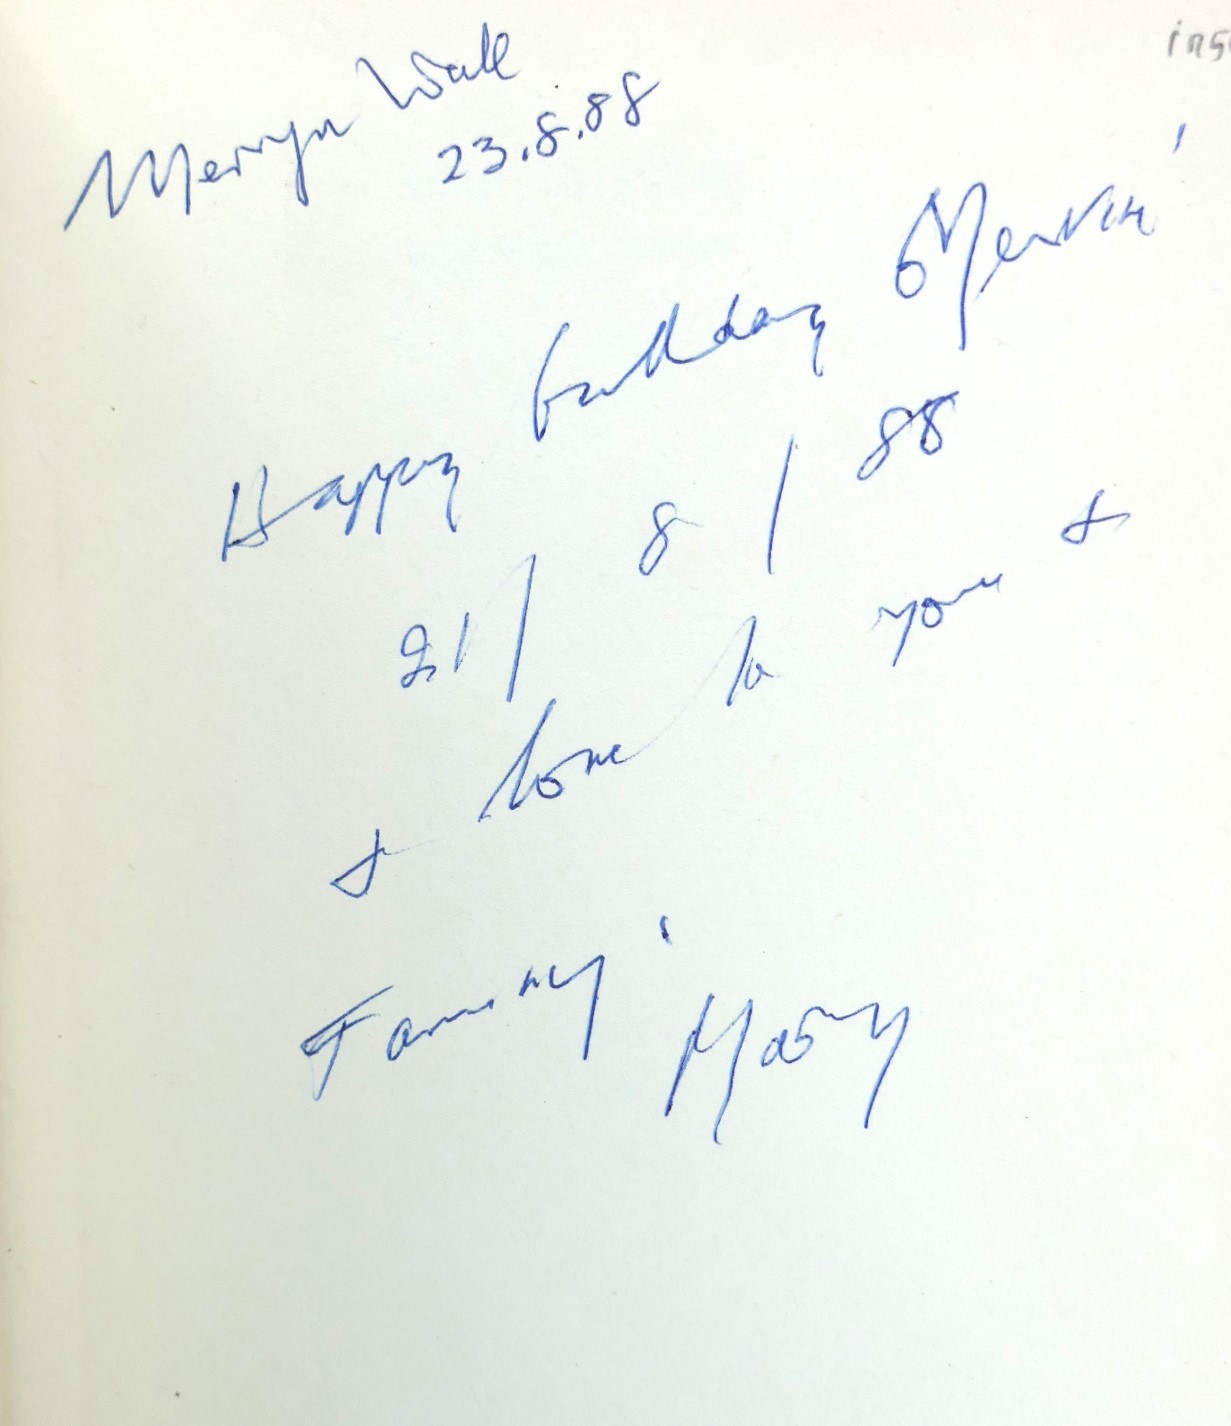 Mervyn Wall
23.8.88
ins
Happy birthday Mervin!
21/8/88
& love to you &
Fanny! Mary